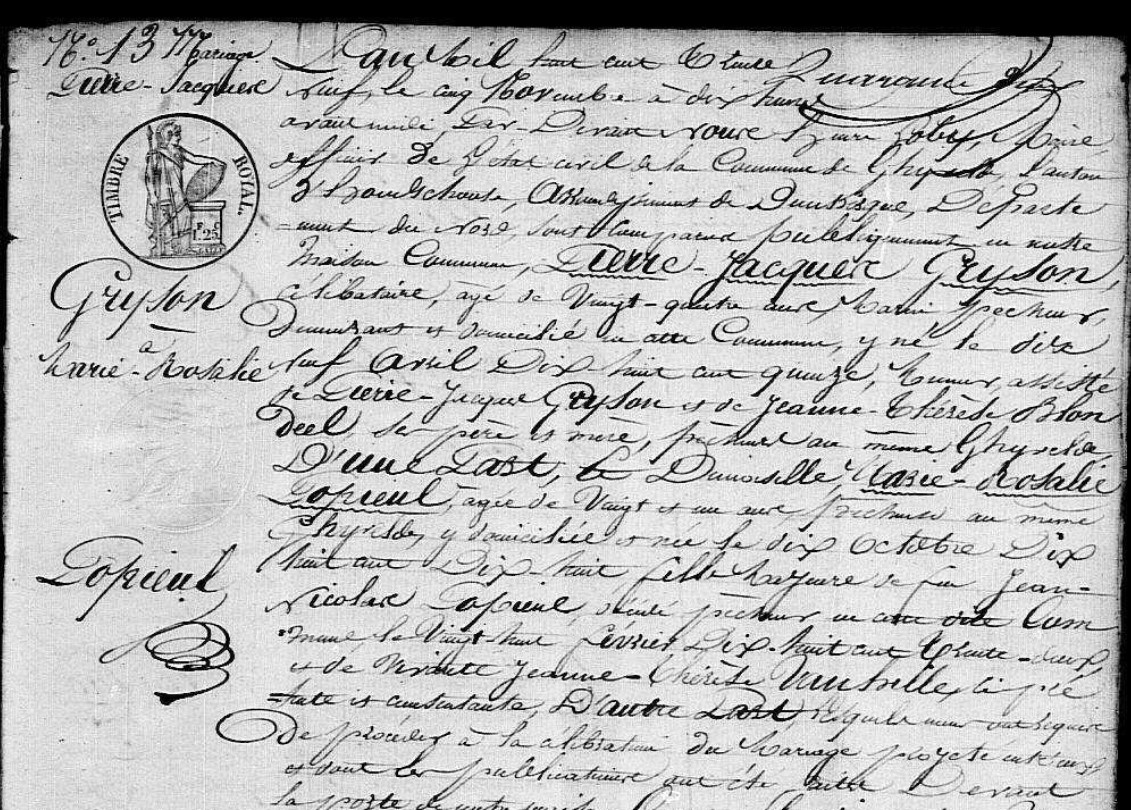 N.° 13 Mariage
Pierre-Jacques
TIMBRE ROYAL.
1.25
Gryson
a
Marie-Rosalie
Popieul
L'an Mil huit cent trente
Neuf, le cinq Novembre à dix heures
avant midi, Par-Devant nous Maire,
officier de l'état civil de la Commune de Ghyvelde, Canton
D'hondschoote, Arrondissement de Dunkerque, Départe
=ment du Nord, sont comparus publiquement en notre
Maison Commune, Pierre-Jacques Gryson,
célibataire, agé de Vingt-quatre ans, Marin pecheur,
Demeurant et domicilié en cette Commune, y né le dix
neuf Avril Dix-huit cent quinze, Mineur, assisté
de Pierre-Jacques Gryson et de Jeanne-Thérèse Blon
deel, ses père et mère, pécheurs au même Ghyvelde,
D'une Part, Demoiselle, Marie-Rosalie
Popieul, agée de Vingt et un ans, pécheuse au même
Ghyvelde, y domiciliée et née le dix Octobre Dix
huit cent Dix-huit fille Majeure de feu Jean-
Nicolas Popieul, décédé pécheur en cette dite Com
mune le Vingt-huit février Dix-huit cent trente-deux,
et de Jeanne-Thérèse ci pré
=sente et consentante, D'autre Part, Lesquels nous ont requis
De procéder à la célébration du Mariage projeté entr'eux
et dont les publications ont été faites Devant
la porte de notre